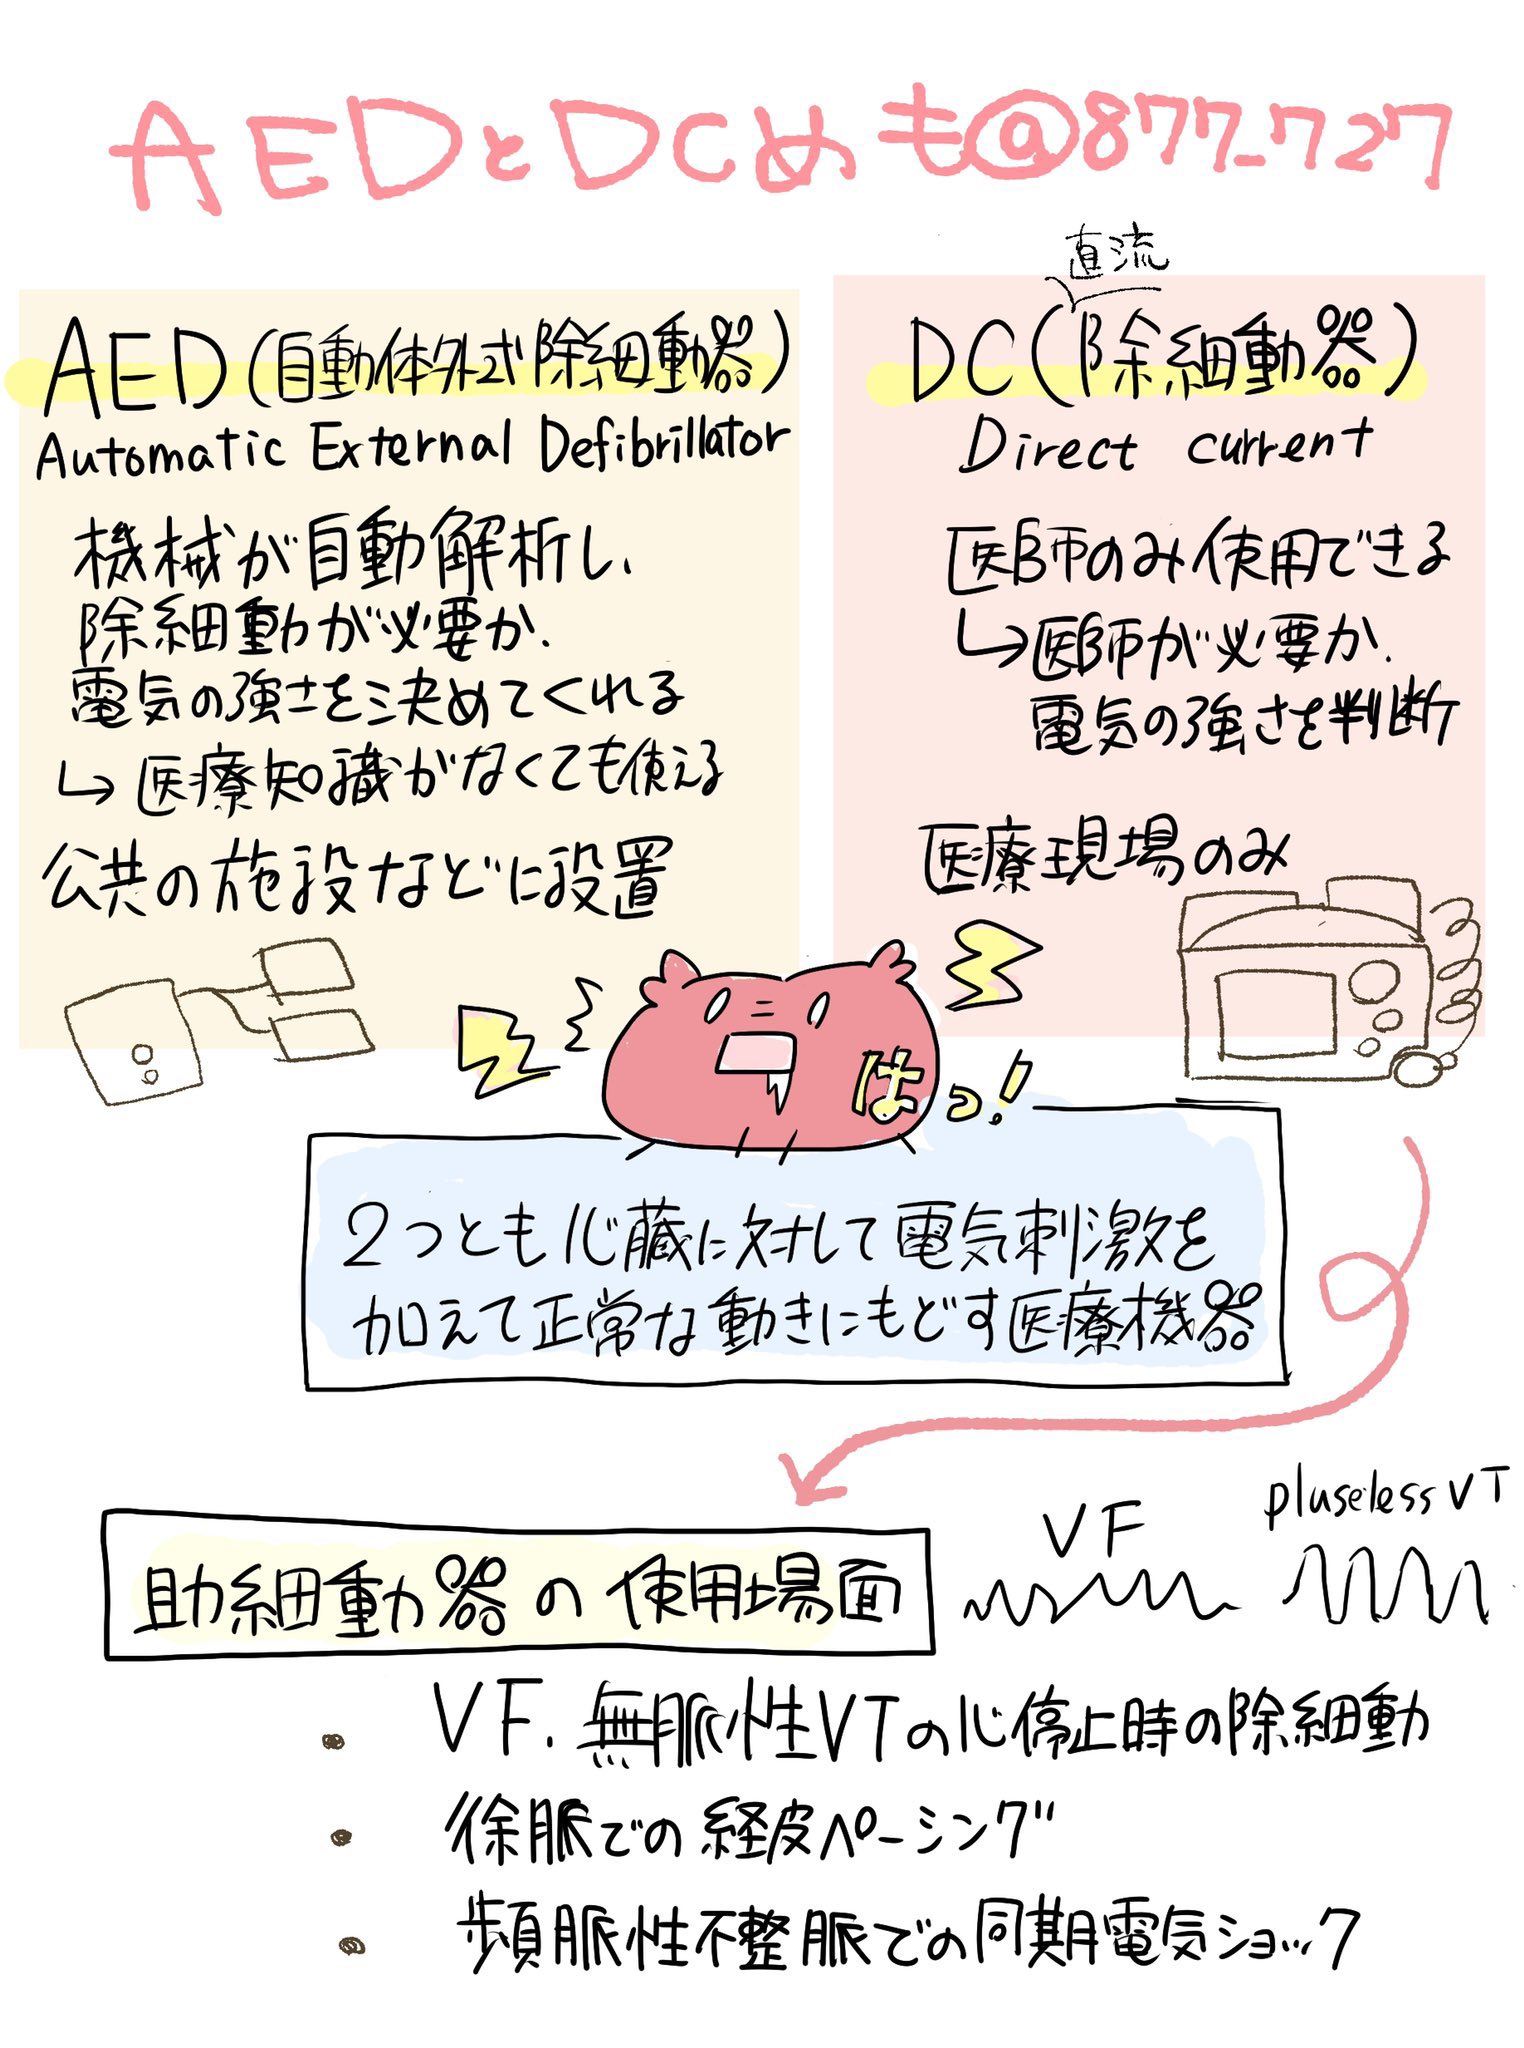 AEDとDCめも@877_727
AED(自動体外式除細動器)
Automatic External Defibrillator
機械が自動解析し、
除細動が必要か、
電気の強さを決めてくれる
↳医療知識がなくても使える
公共の施設などに設置
直流
DC(除細動器)
Direct current
医師のみ使用できる
↳医師が必要か、
電気の強さを判断
医療現場のみ
はっ!
2つとも心臓に対して電気刺激を
加えて正常な動きにもどす医療機器
助細動器の使用場面
VF
pluseless VT
・VF、無脈性VTの心停止時の除細動
・徐脈での経皮ペーシング
・頻脈性不整脈での同期電気ショック